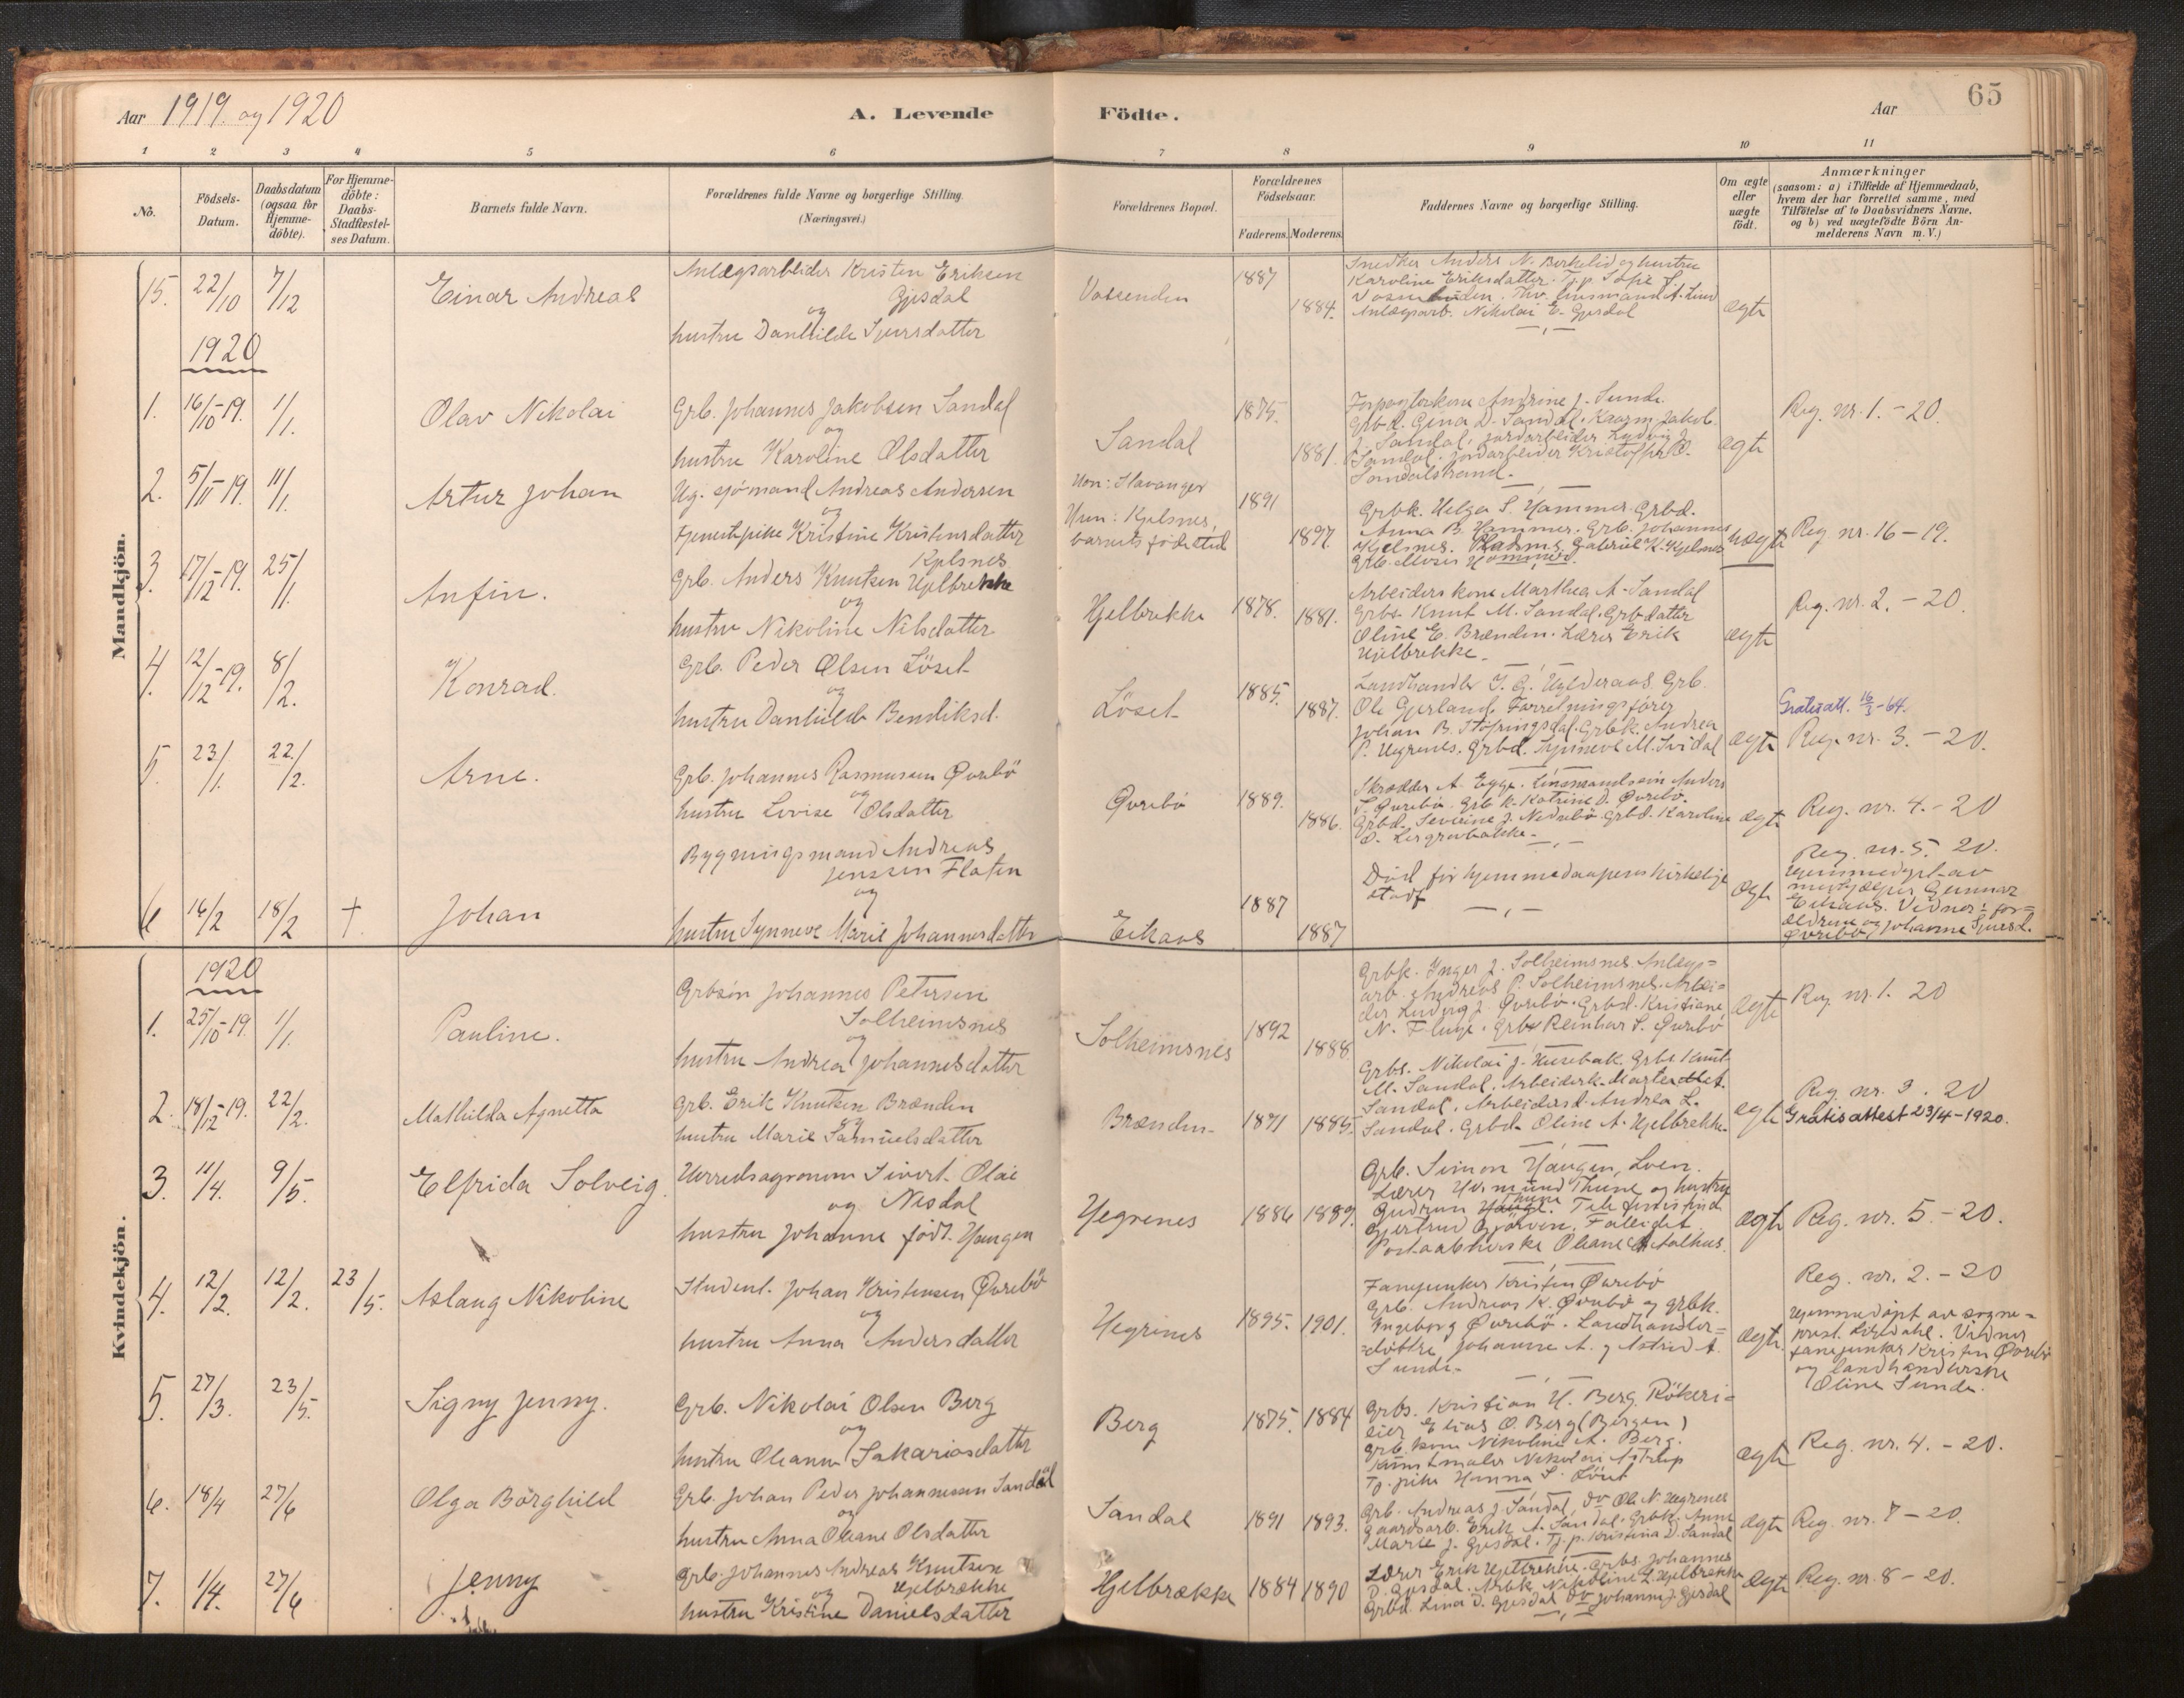 Aar 1919 og 1920
A. Levende
Födte.
Aar
65
1 2 3 4 5 6 7 8 9 10 11
No.
Födsels-Datum.
Daabsdatum (ogsaa for Hjemme-döbte).
For Hjemme-döbte: Daabs-Stadfæstel-ses Datum.
Barnets fulde Navn.
Forældrenes fulde Navne og borgerlige Stilling. (Næringsvei.)
Forældrenes Bopæl.
Forældrenes Födselsaar.
Faderens. Moderens.
Faddernes Navne og borgerlige Stilling.
Om ægte eller uægte födt.
Anmærkninger
(saasom: a) i Tilfælde af Hjemmedaab,
hvem der har forrettet samme, med
Tilföielse af to Daabsvidners Navne,
og b) ved uægtefödte Börn An-
melderens Navn m. V.)
Mandkjön.
15. 22/10 7/12 Einar Andreas
Anlægsarbeider Kristen Eriksen
Gjesdal
og
hustru Danhilde Sjursdatter
Vassenden 1887 1884.
Snedker Anders N. Birkelid og hustru
Karoline Eriksdatter. Tj.p. Sofie J.
Anlægsarb. Nikolai E. Gjesdal
ægte
1920
1. 16/10-19. 1/1. Olav Nikolai
Grb. Johannes Jakobsen Sandal
og
hustru Karoline Olsdatter
Sandal 1875. 1881.
Forpagterkone Andrine J. Sunde.
Grbd. Gina D. Sandal. Kaarm. Jakob
J. Sandal, jordarbeider Ludvig J.
Sandal. jordarbeider Kristoffer O.
Sandalstrand.
ægte
Reg. nr. 1. - 20.
2. 5/11-19. 11/1. Artur Johan
Ug. sjömand Andreas Andersen
og
tjenestpike Kristine Kristensdatter
Kjelsnes
Han: Stavanger
Hun: Kjelsnes,
barnets födested
1891 1897.
Grbk. Helga S. Hammer. Grbd.
Anna B. Hammer. Grb. Johannes
Kjelsnes. Gabriel K. Kjelsnes
Grb. Moses Hammer.
uægte
Reg nr. 16 - 19.
3. 17/12-19. 25/1. Anfin.
Grb. Anders Knutsen Hjelbrekke
og
hustru Nikoline Nilsdatter
Hjelbrekke 1878. 1881.
Arbeiderskone Marthea A. Sandal
Grbs. Knut M. Sandal. Grbdatter
Oline E. Brænden. Lærer Erik
Hjelbrekke.
ægte
Reg. nr. 2. - 20.
4. 12/12-19. 8/2. Konrad.
Grb. Peder Olsen Löset
og
hustru Danhilde Bendiksd.
Löset 1885. 1887.
Landhandler J. G. Hylderaas. Grb.
Ole Gjerland. Forretningsförer
Johan B. Stöfringsdal. Grbk. Andrea
P. Hegrenes. Grbd. Synneve M. Svidal
ægte
Gratisatt. 16/3-64.
Reg. nr. 3. - 20.
5. 23/1. 22/2. Arne.
Grb. Johannes Rasmusen Øvrebö
og
hustru Lovise Olsdatter
Øvrebö 1889. 1886.
Skrædder A. Egge. Lensmandssön Anders
S. Øvrebö. Grb k. Katrine D. Øvrebö.
Grbd. Severine J. Nedrebö. Grbd. Karoline
O. Lergrovbakke.
ægte
Reg. nr. 4. - 20
6 16/2 18/2 † Johan
Bygningsmand Andreas
Jenssen Flaten
og
hustru Synneve Marie Johannesdatter
Eikaas 1887 1887
Död för hjemmedaapens kirkelige
stadf
ægte
Reg. nr. 5. 20.
Hjemmedöpt av
Gunnar
Eikaas. Vidner: for-
ældrene og Johanne Sjursd.
Øvrebö.
Kvindekjön.
1920
1. 25/10-19. 1/1. Pauline.
Grbsön Johannes Petersen
Solheimsnes
og
hustru Andrea Johannesdatter
Solheimsnes 1892 1888
Grbk. Inger J. Solheimsnes. Anlægs-
arb. Andreas P. Solheimsnes. Arbei-
der Ludvig J. Øvrebö. Grbd. Kristiane
N. Fluge. Grbs Reinhar S. Øvrebö
ægte
Reg nr. 1. 20
2. 18/12-19. 22/2. Mathilda Agnetta
Grb. Erik Knutsen Brænden
og
hustru Marie Samuelsdatter
Brænden 1891 1885.
Grbs. Nikolai J. Husebak. Grbs Knut
M. Sandal. Arbeiderk. Marte
Sandal. Arbeidersd. Andrea L.
Sandal. Grbd. Oline A. Hjelbrekke.
ægte
Reg. nr. 3. 20
Gratisattest 23/4-1920.
3. 11/4. 9/5. Elfrida Solveig.
Herredsagronom Sivert Olai
og Nesdal
hustru Johanne födt. Haugen
Hegrenes 1886 1889.
Grb. Simon Haugen, Loen.
Lærer Hermund Thune og hustru
Gudrun Thune.
Gjertrud Gjörven, Faleidet
Postaapnerske Oleane A. Aalhus.
ægte
Reg. nr. 5. - 20.
4. 12/2. 12/2. 23/5. Aslaug Nikoline
Student. Johan Kristensen Øvrebö
og
hustru Anna Andersdatter
Hegrenes 1895. 1901.
Fanejunker Kristen Øvrebö
Grb. Andreas K. Øvrebö og grbk.
Ingeborg Øvrebö. Landhandler-
döttre Johanne A. og Astrid A.
Sunde.
ægte
Reg. nr. 2. - 20
Hjemmedöpt av sogne-
prest. Vidner
fanejunker Kristen Øvrebö
og landhandlerske
Oline Sunde.
5. 27/3. 23/5. Signy Jenny.
Grb. Nikolai Olsen Berg
og
hustru Oleanna Sakariasdatter
Berg 1875. 1884
Grbs. Kristian H. Berg. Rökeri-
eier Elias O. Berg (Bergen)
Grb. kone Nikoline A. Berg.
Kunstmaler Nikolai Astrup
Tj. pike Hanna S. Löset
ægte
Reg. nr. 4. - 20.
6. 18/4 27/6 Olga Borghild
Grb. Johan Peder Johannessen Sandal
og
hustru Anna Oleane Olsdatter
Sandal 1891 1893.
Grb. Andreas J. Sandal, do Ole N. Hegrenes
Gaardsarb. Erik A. Sandal. Grbk. Anne
Marte J. Gjesdal. Tj. p. Kristina D. Sandal
ægte
Reg. nr. 7 - 20.
7. 1/4. 27/6 Jenny
Grb. Johannes Andreas Knutsen
Hjelbrække
og
hustru Kristine Danielsdatter
Hjelbrække 1884 1890
Lærer Erik Hjelbrekke. Grbs. Johannes
D. Gjesdal. Arbk. Nikoline L. Hjelbrekke
Grbd. Lina D. Gjesdal do Johanne J. Gjesdal
ægte
Reg. nr. 8 - 20.